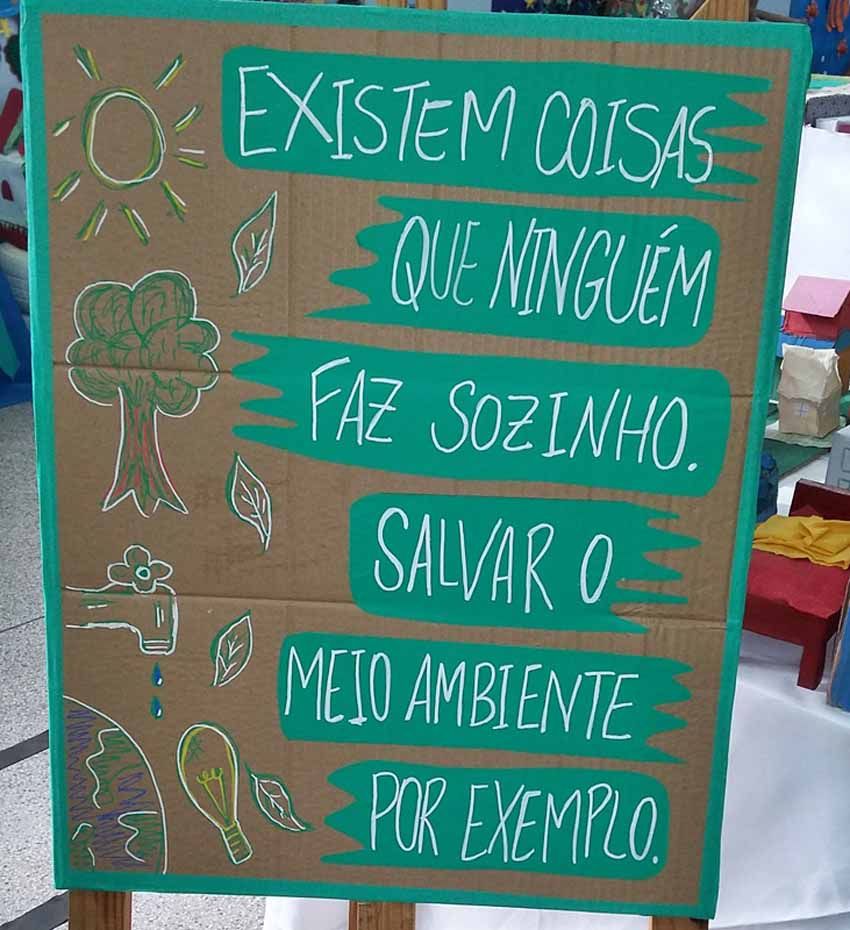 EXISTEM COISAS
QUE NINGUÉM
FAZ SOZINHO.
SALVAR O
MEIO AMBIENTE
POR EXEMPLO.